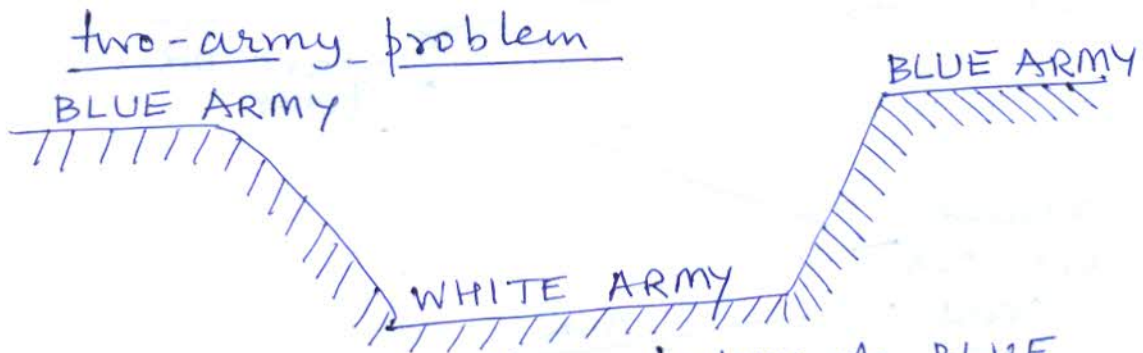 two-army problem
BLUE ARMY
BLUE ARMY
WHITE ARMY
A BLUE